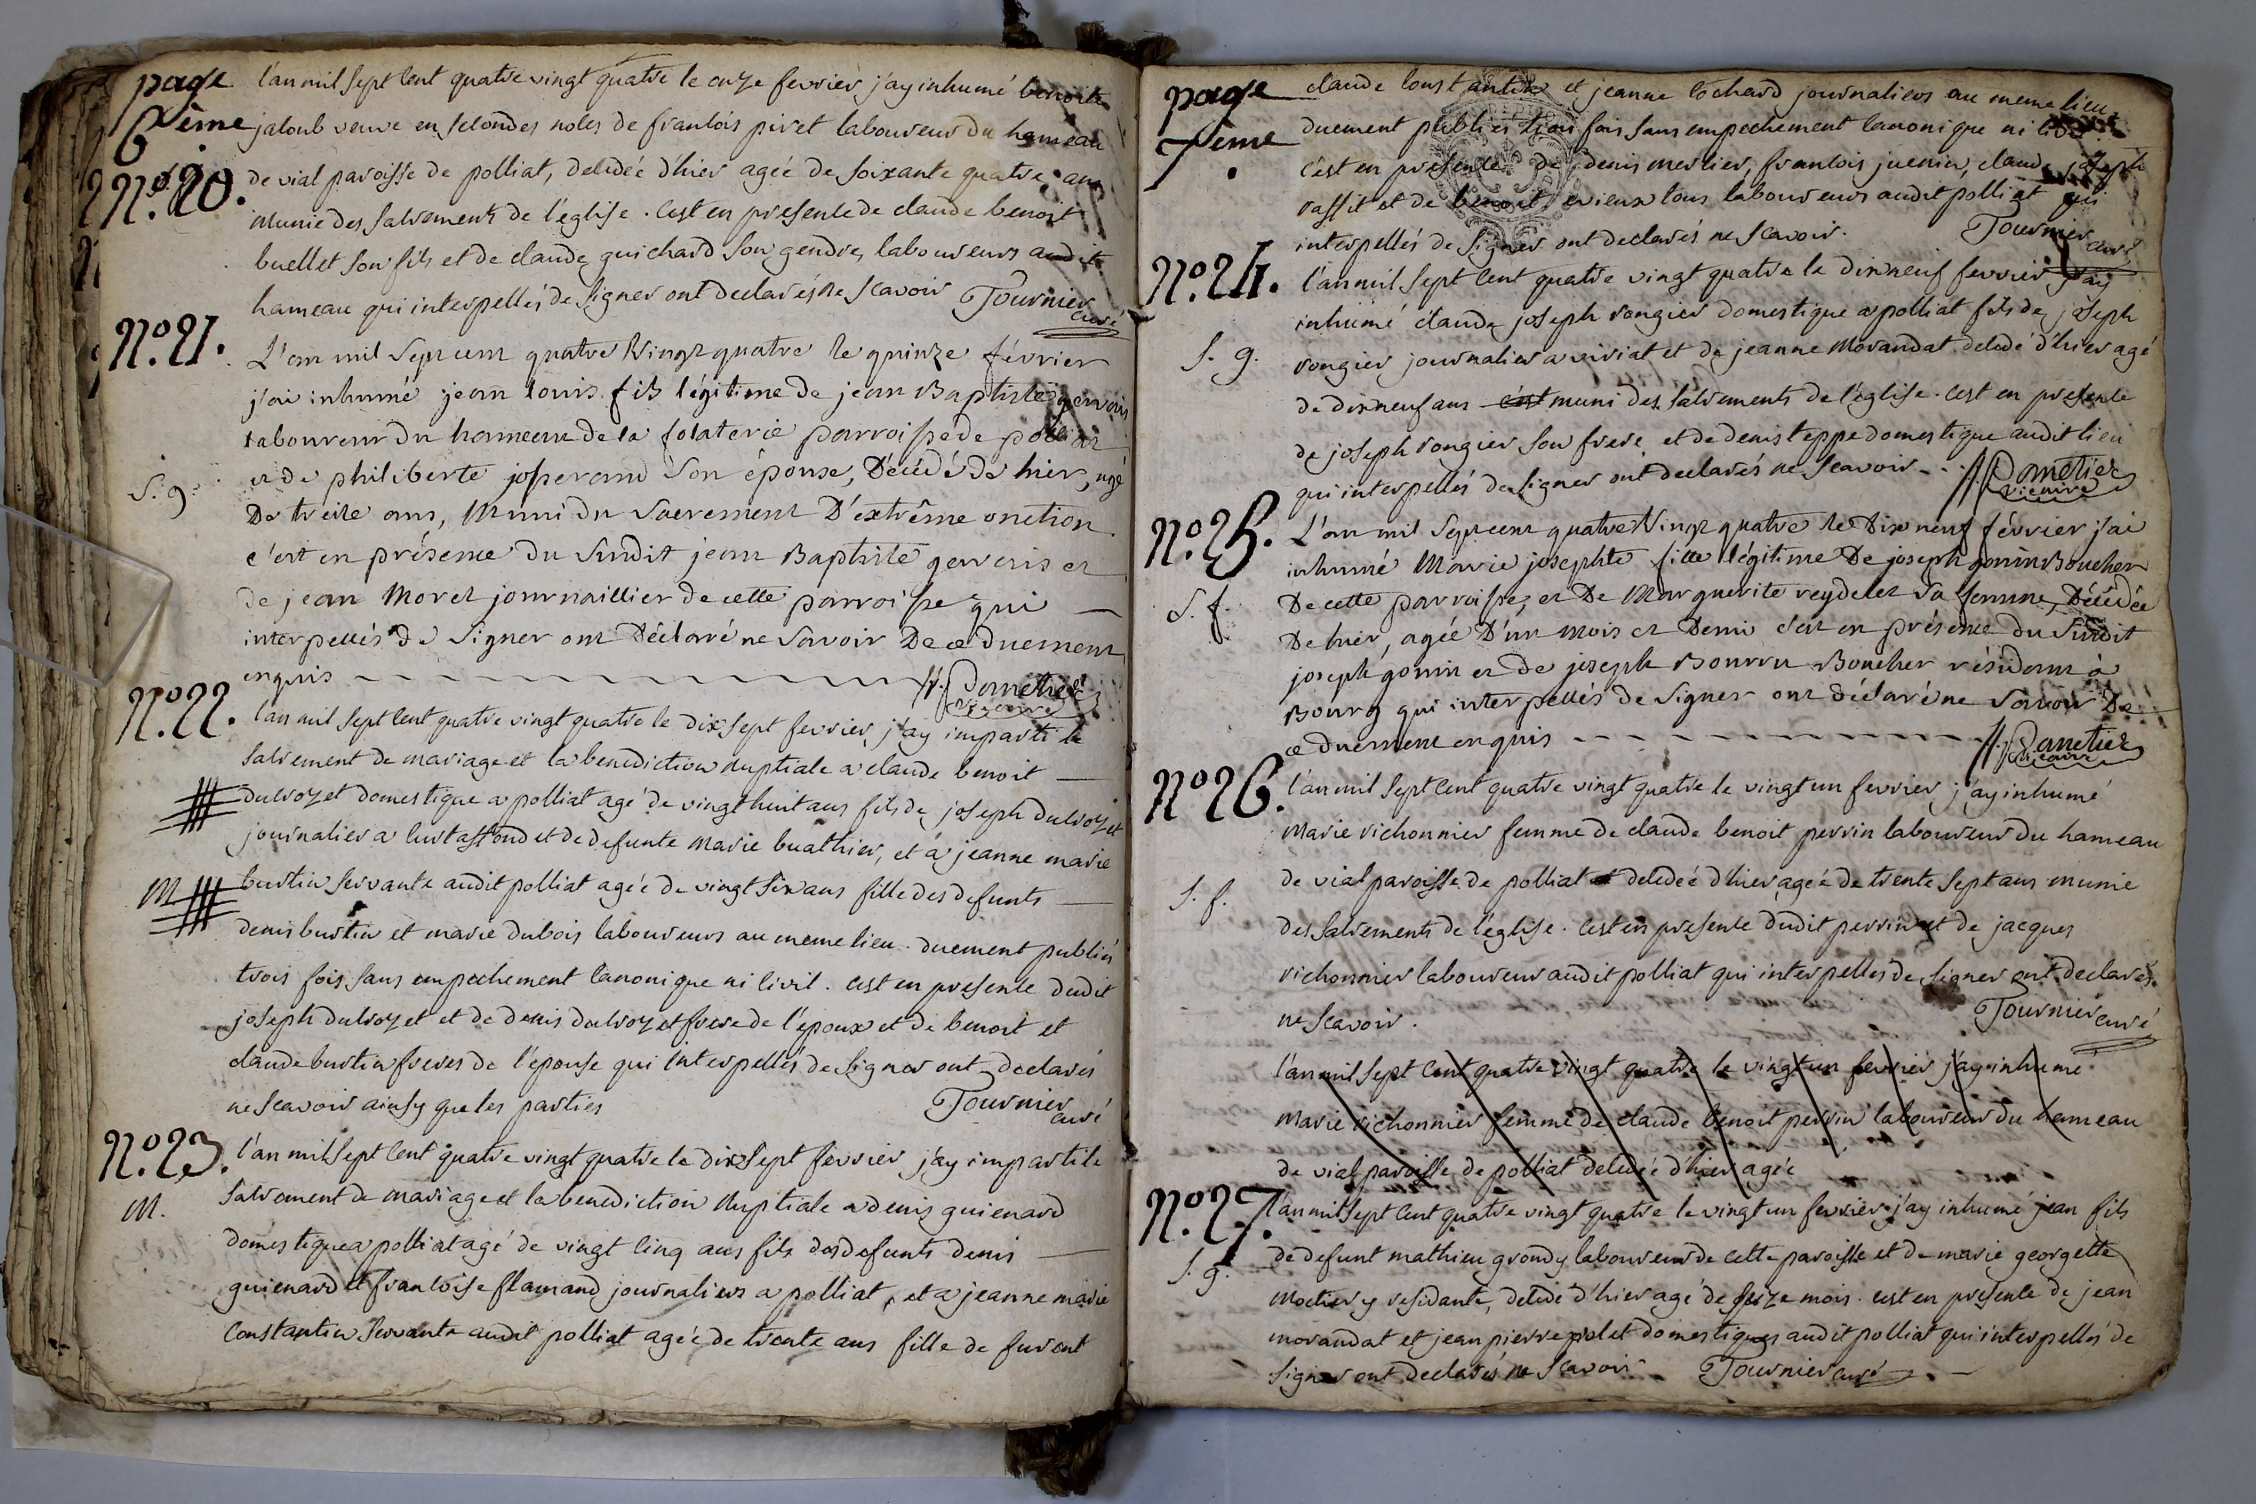 page
6ème
N°. 20.
l'an mil sept cent quatre vingt quatre le onze fevrier j'ay inhumé benoite
jacoub veuve en secondes noces de francois pivet laboureur du hameau
de vial paroisse de polliat, decedée d'hier agée de soixante quatre ans
munie des sacrements de l'église. c'est en presence de claude benoit
buellet son fils et de claude guichard son gendre, laboureurs audit
hameau qui interpellés de signer ont declarés ne scavoir Tournier
curé
N°. 21.
S. g.
L'an mil sept cent quatre vingt quatre le quinze février
j'ai inhumé jean louis fils légitime de jean Baptiste gervais
laboureur du hameau de la folaterie parroisse de polliat
et de philiberte josserand son épouse, Décédé de hier, agé
De treize ans, Muni du Sacrement D'extrême onction
c'est en présence du Susdit jean Baptiste gervais et
de jean Morel journaillier de cette parroisse qui
interpellés de Signer ont Déclaré ne Savoir De ce duement
enquis
Pometier
vicaire
N°. 22.
M
l'an mil sept cent quatre vingt quatre le dix sept fevrier j'ay imparti le
sacrement de mariage et la benediction nuptiale a claude benoit
ducroyet domestique a polliat agé de vingt huit ans fils de joseph ducroyet
journalier a curtaffond et de defunte marie buathier, et a jeanne marie
burtin servante audit polliat agée de vingt six ans fille des defunts
denis burtin et marie dubois laboureurs au meme lieu. duement publiés
trois fois sans empechement canonique ni civil. c'est en presence dudit
joseph ducroyet et de denis ducroyet frere de l'epoux et de benoit et
claude burtin freres de l'epouse qui interpellés de signer ont declarés
ne scavoir ainsy que les parties Tournier
curé
N°. 23.
M.
l'an mil sept cent quatre vingt quatre le dix sept fevrier j'ay imparti le
sacrement de mariage et la benediction nuptiale a denis guienard
domestique a polliat agé de vingt cinq ans fils des defunts denis
guienard et francoise flamand journaliers a polliat, et a jeanne marie
constantin servante audit polliat agée de trente ans fille de furent
page
7ème
claude constantin et jeanne cochard journaliers au meme lieu
duement publiés trois fois sans empechement canonique ni civil
c'est en presence de denis merlier, francois juenin, claude joseph
raffit et de benoit evieux tous laboureurs audit polliat qui
interpellés de signer ont declarés ne scavoir. Tournier
curé
N°. 24.
S. g.
l'an mil sept cent quatre vingt quatre le dix neuf fevrier j'ay
inhumé claude joseph rongier domestique a polliat fils de joseph
rongier journalier a viriat et de jeanne Morandat decedé d'hier agé
de dix neuf ans c'est muni des sacrements de l'église. c'est en presence
de joseph rongier son frere et de denis teppe domestique audit lieu
qui interpellés de signer ont declarés ne scavoir
Pometier
vicaire
N°. 25.
S. f.
L'an mil sept cent quatre Vingt quatre le Dix neuf février j'ai
inhumé Marie josephte fille légitime De joseph gonin Boucher
De cette parroisse, et De Marguerite reydelet Sa femme, Décédée
De hier, agée D'un mois et Demi c'est en présence du Susdit
joseph gonin et de joseph Bourru Boucher résidant à
Bourg qui interpellés de Signer ont déclaré ne Savoir De
ce duement enquis
Pometier
vicaire
N°. 26.
S. f.
l'an mil sept cent quatre vingt quatre le vingt un fevrier j'ay inhumé
Marie richonnier femme de claude benoit perrin laboureur du hameau
de vial paroisse de polliat decedée d'hier agée de trente sept ans munie
des sacrements de l'église. c'est en presence dudit perrin et de jacques
richonnier laboureur audit polliat qui interpellés de signer ont declarés
ne scavoir. Tournier curé
l'an mil sept cent quatre vingt quatre le vingt un fevrier j'ay inhumé
Marie richonnier femme de claude benoit perrin laboureur du hameau
de vial paroisse de polliat decedée d'hier agée
N°. 27.
S. g.
l'an mil sept cent quatre vingt quatre le vingt un fevrier j'ay inhumé jean fils
de defunt mathieu grondy laboureur de cette paroisse et de marie georgette
Moctier y residante, decedé d'hier agé de seize mois. c'est en presence de jean
morandat et jean pierre polet domestiques audit polliat qui interpellés de
signer ont declarés ne scavoir. Tournier curé